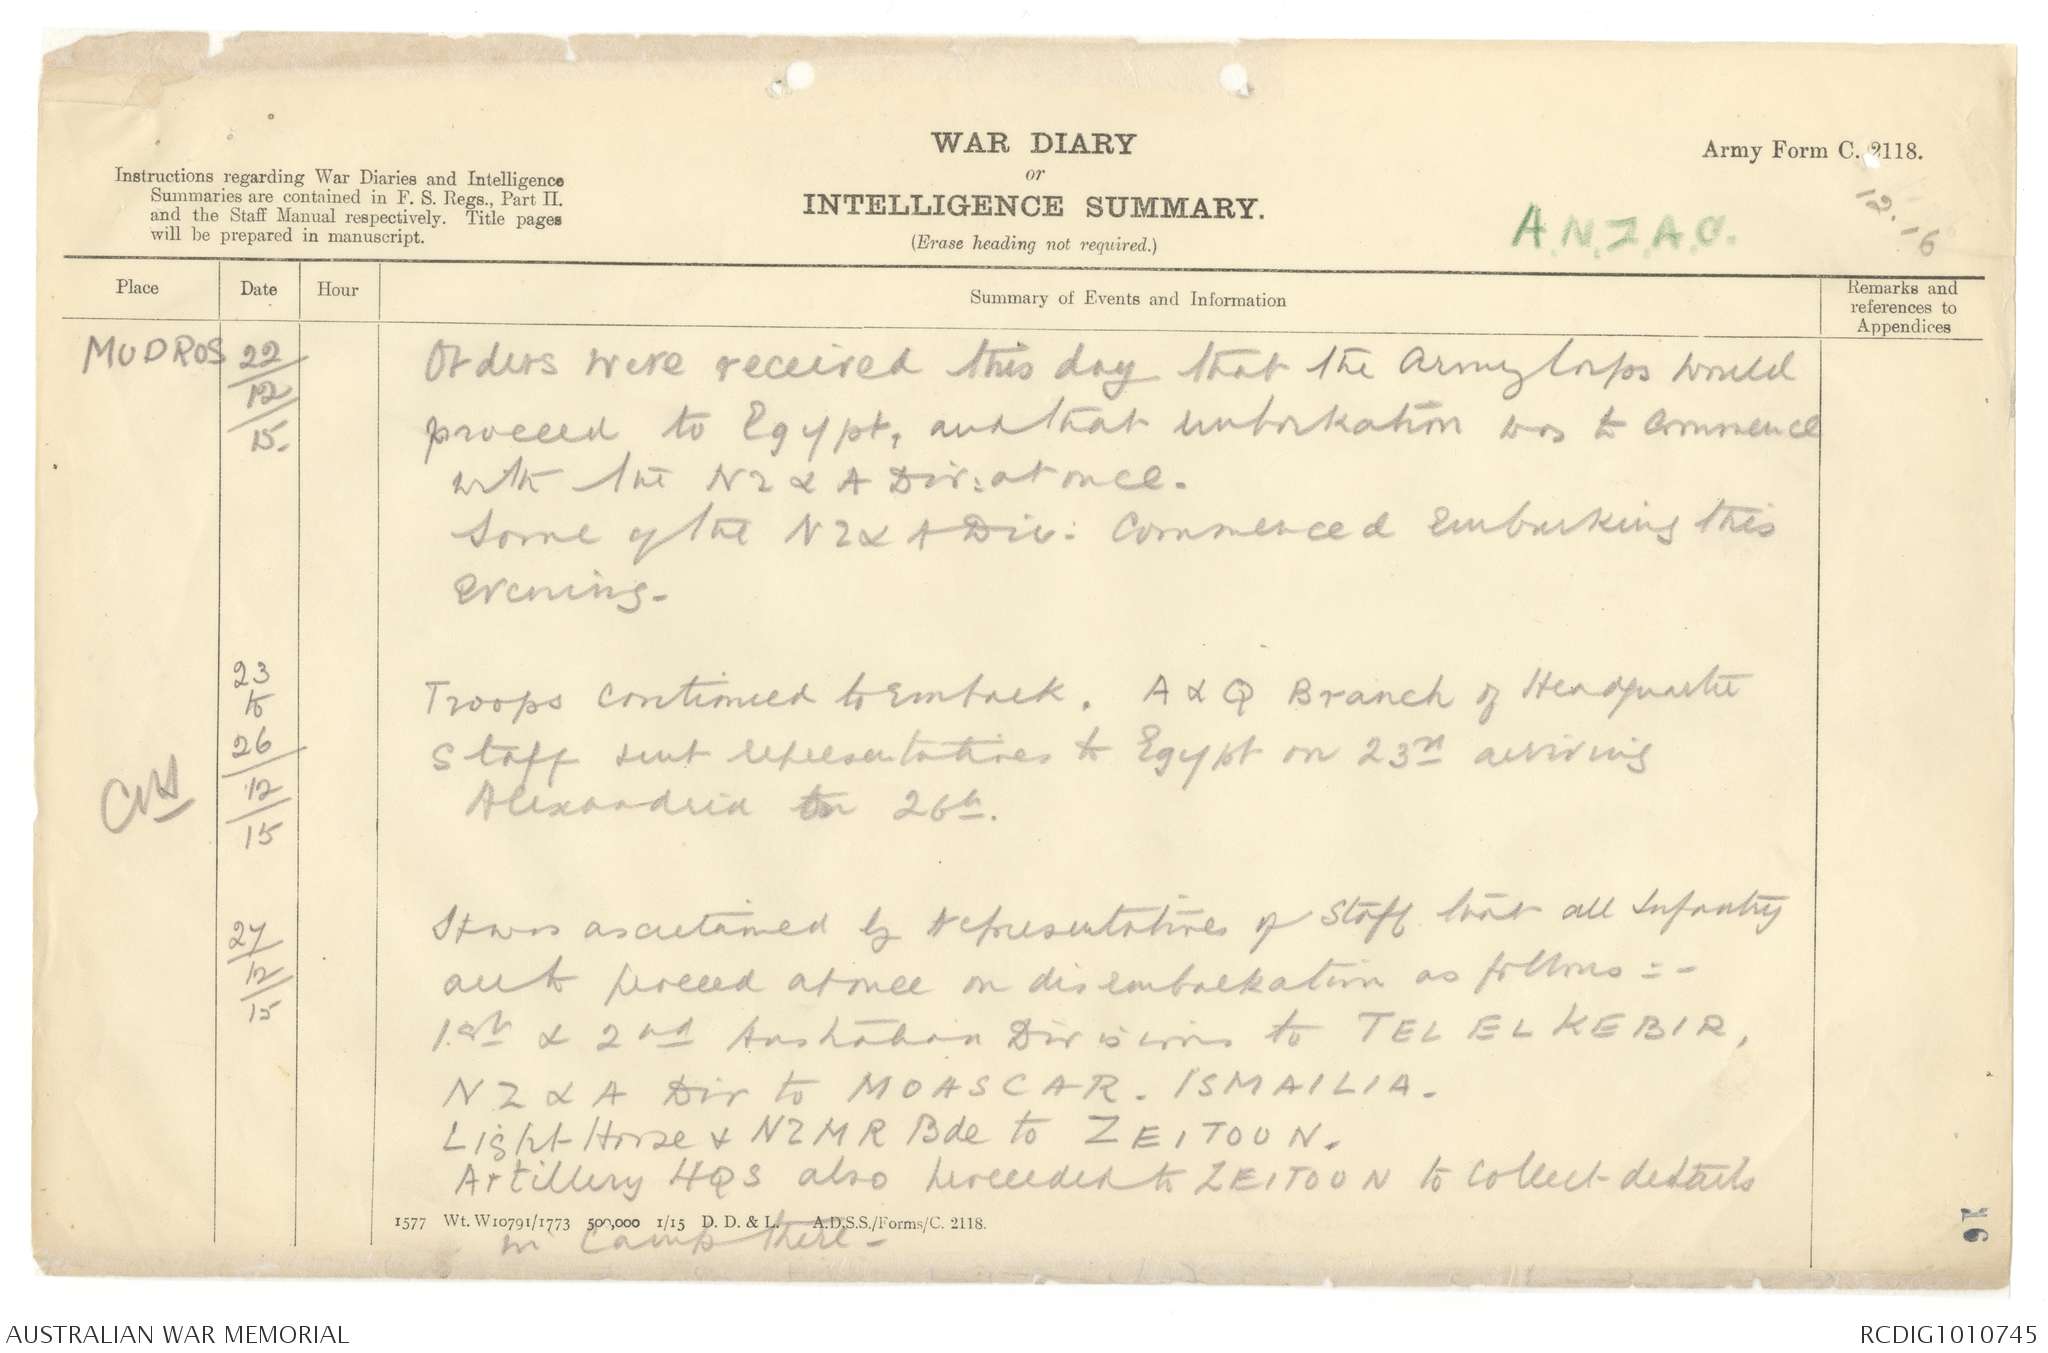 WAR DIARY
or
INTELLIGENCE SUMMARY.
(Erase heading not required.)
Army Form C. 2118.
Instructions regarding War Diaries and Intelligence
Summaries are contained in F. S. Regs., Part II.
and the Staff Manual respectively. Title pages
will be prepared in manuscript.
A.N.Z.A.C.
12.-6
Place
Date
Hour
Summary of Events and Information
Remarks and
references to
Appendices
MUDROS
22
12
15.
Orders were received this day that the Army Corps would
proceed to Egypt, and that embarkation was to commence
with the NZ & A Div: at once.
Some of the NZ & A Div: Commenced embarking this
evening.
23
to
26
12
15
Troops continued to embark. A & Q Branch of Headquarter
Staff sent representatives to Egypt on 23rd arriving
Alexandria on 26th.
27
12
15
It was ascertained by representatives of Staff that all Infantry
are to proceed at once on disembarkation as follows:-
1st & 2nd Australian Divisions to TEL EL KEBIR,
NZ & A Div to MOASCAR. ISMAILIA.
Light Horse & NZMR Bde to ZEITOUN.
Artillery HQS also proceeded to ZEITOUN to collect details
in Camp there-
1577 Wt. W10791/1773 500,000 1/15 D. D. & L. A.D.S.S./Forms/C. 2118.
AUSTRALIAN WAR MEMORIAL
RCDIG1010745